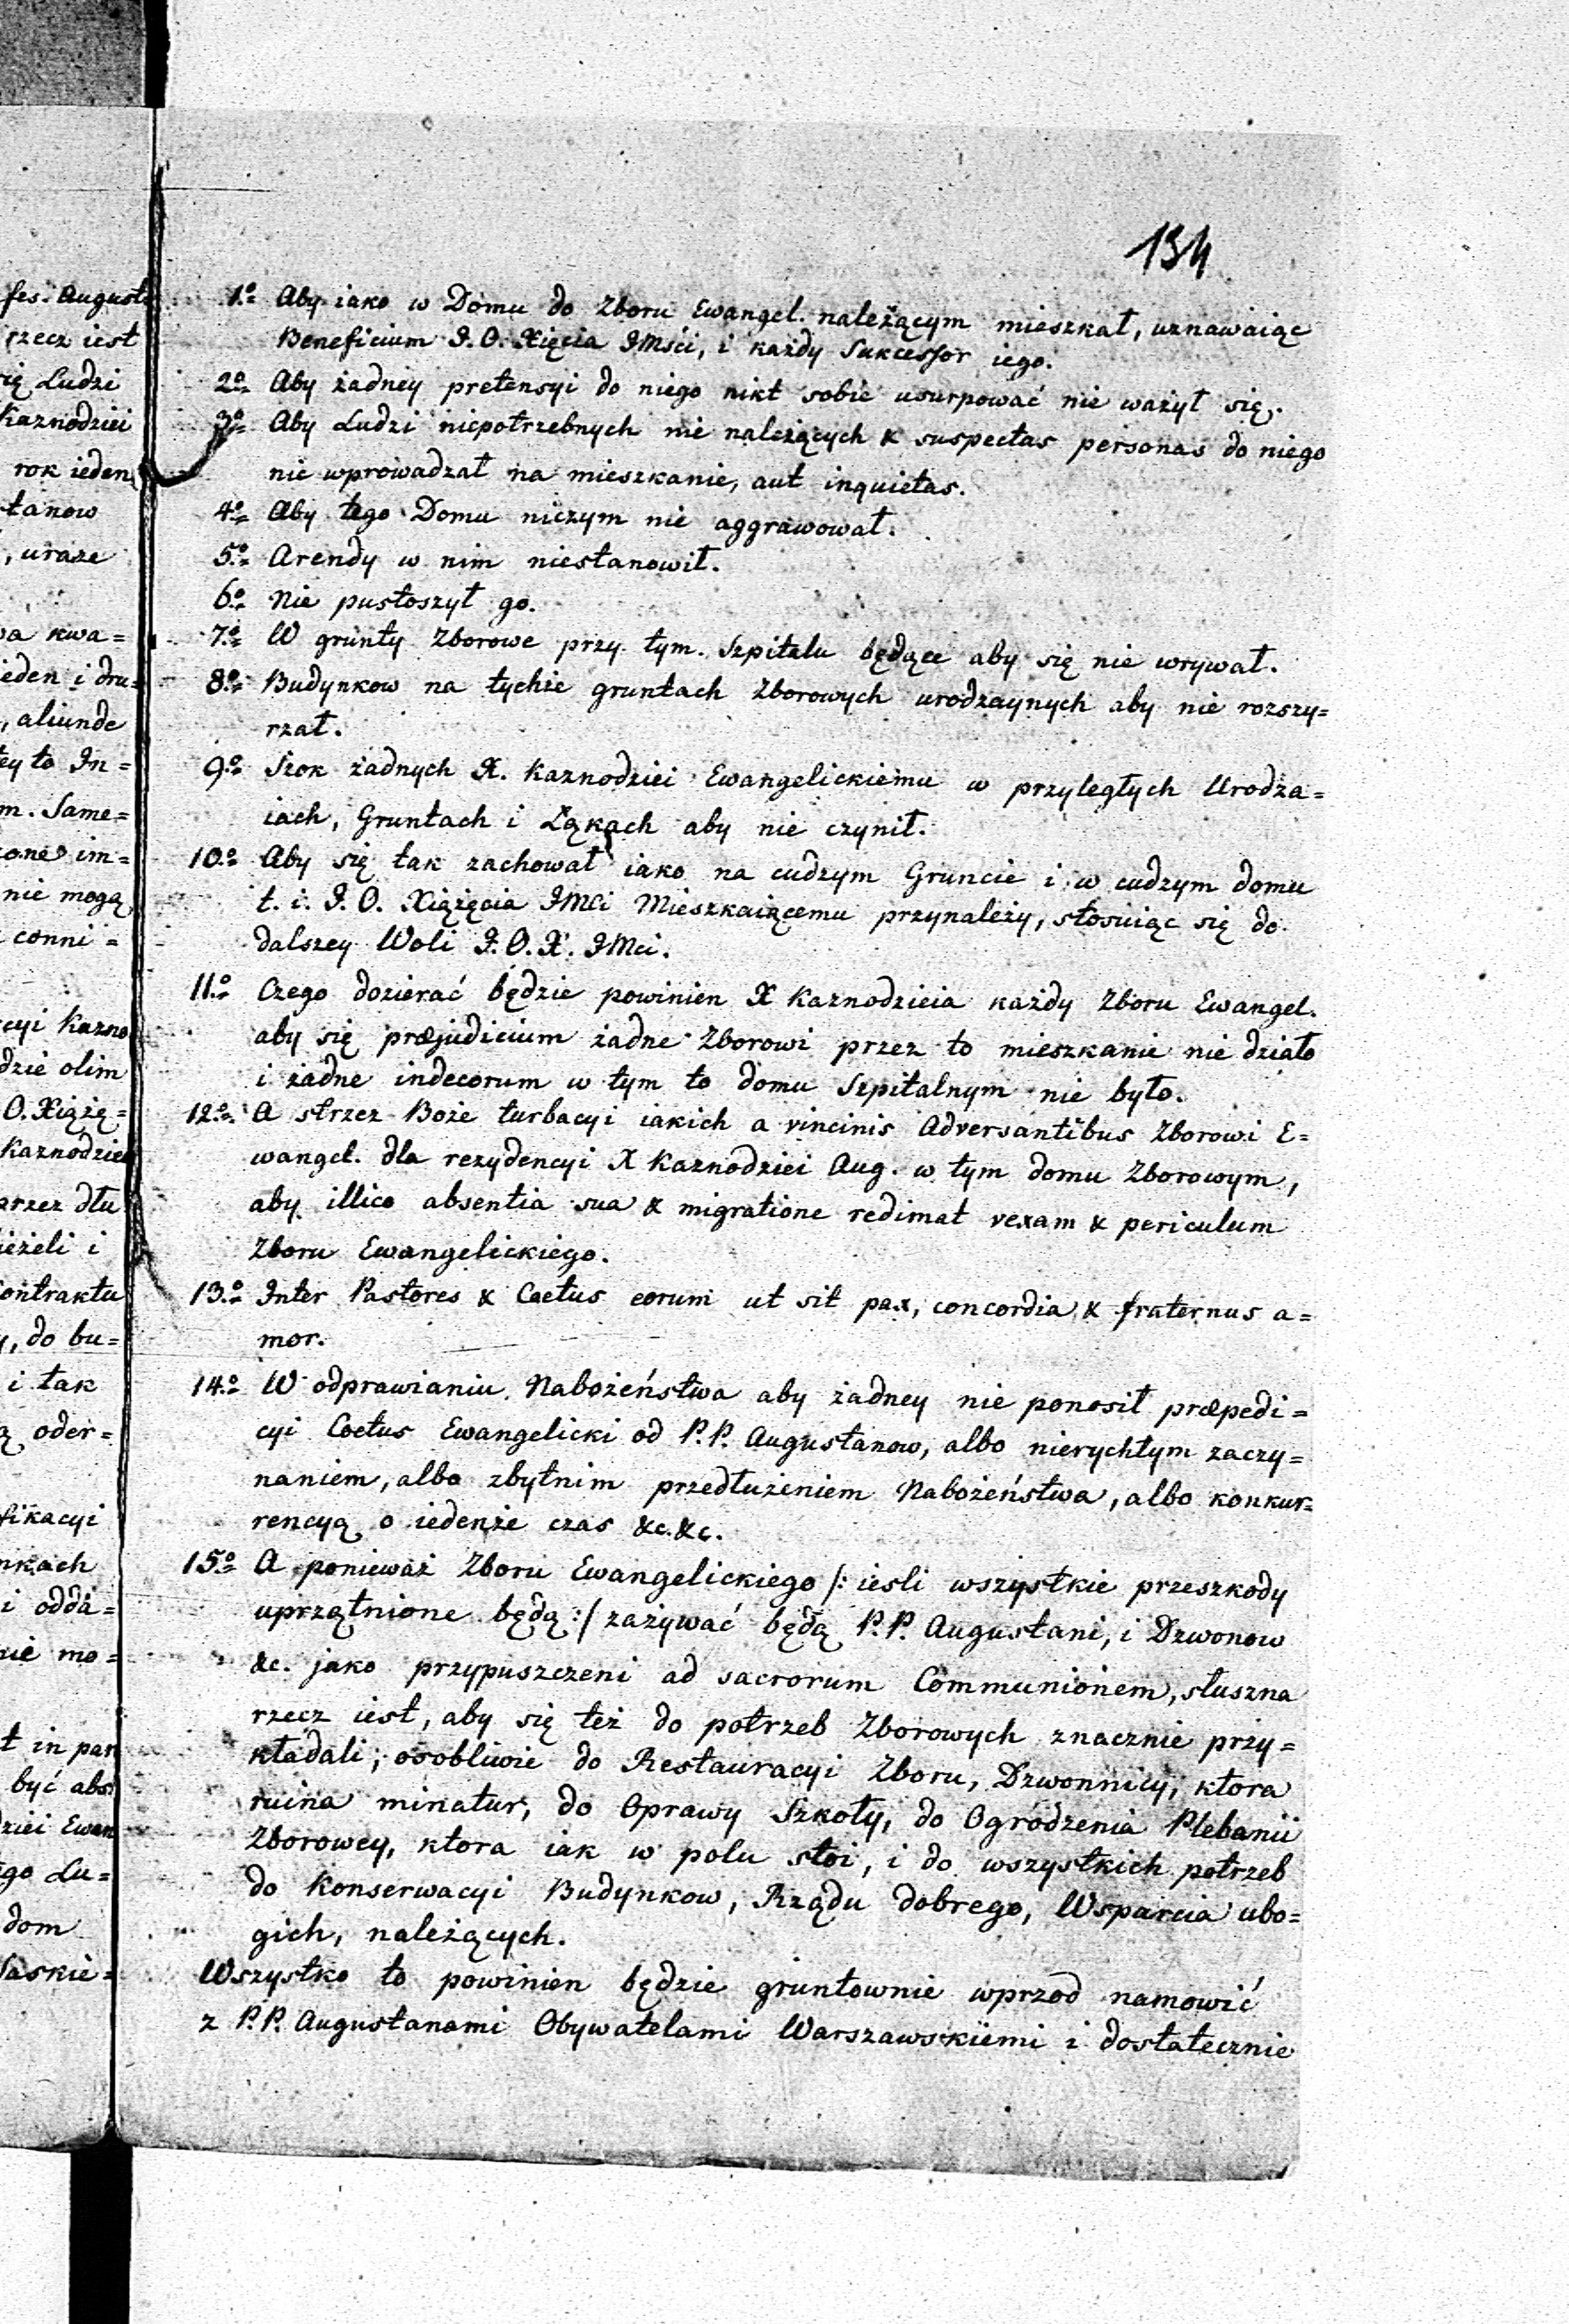 134
1.o Aby iako w Domu do Zboru Ewangel. należącym mieszkał, uznawaiąc
Beneficium J.O. Xięcia JMści, i każdy Sukcessor iego.
2.o Aby żadney pretensyi do niego nikt sobie usurpować nie ważył się.
3.o Aby Ludzi niepotrzebnych nie należących & suspectas personas do niego
nie wprowadzał na mieszkanie, aut inquietas.
4.o Aby tego Domu niczym nie aggrawował.
5.o Arendy w nim niestanowił.
6.o Nie pustoszył go.
7.o W grunty Zborowe przy tym Szpitalu będące aby się nie wrywał.
8.o Budynkow na tychże gruntach Zborowych urodzaynych aby nie rozszy=
rzał.
9.o Szok żadnych X. Kaznodziei Ewangelickiemu w przyległych Urodza=
iach, Gruntach i Łąkach aby nie czynił.
10.o Aby się tak zachował iako na cudzym Gruncie i w cudzym domu
t. i. J.O. Xiążęcia JMci Mieszkaiącemu przynależy, stosuiąc się do
dalszey Woli J.O.X. JMci.
11.o Czego dozierać będzie powinien X Kaznodzieia każdy Zboru Ewangel.
aby się præjudicium żadne Zborowi przez to mieszkanie nie działo
i żadne indecorum w tym to domu Szpitalnym nie było.
12.o A strzez Boże turbacyi iakich a vincinis Adversantibus Zborowi E=
wangel. dla rezydencyi X Kaznodziei Aug. w tym domu Zborowym,
aby illico absentia sua & migratione redimat vexam & periculum
Zboru Ewangelickiego.
13.o Inter Pastores & Coetus eorum ut sit pax, concordia & fraternus a=
mor.
14.o W odprawianiu Nabożeństwa aby żadney nie ponosił præpedi=
cyi Coetus Ewangelicki od P.P. Augustanow, albo nierychłym zaczy=
naniem, albo zbytnim przedłużeniem Nabożeństwa, albo konkur=
rencyą o iedenże czas &c. &c.
15.o A ponieważ Zboru Ewangelickiego /: iesli wszystkie przeszkody
uprzątnione będą :/ zażywać będą P.P. Augustani, i Dzwonow
&c. jako przypuszczeni ad sacrorum Communionem, słuszna
rzecz iest, aby się też do potrzeb Zborowych znacznie przy=
kładali; osobliwie do Restauracyi Zboru, Dzwonnicy, ktora
ruina minatur, do Oprawy Szkoły, do Ogrodzenia Plebanii
Zborowey, ktora iak w polu stoi, i do wszystkich potrzeb
do Konserwacyi Budynkow, Rządu dobrego, Wsparcia ubo=
gich, należących.
Wszystko to powinien będzie gruntownie wprzod namowić
z P.P. Augustanami Obywatelami Warszawskiemi i dostatecznie